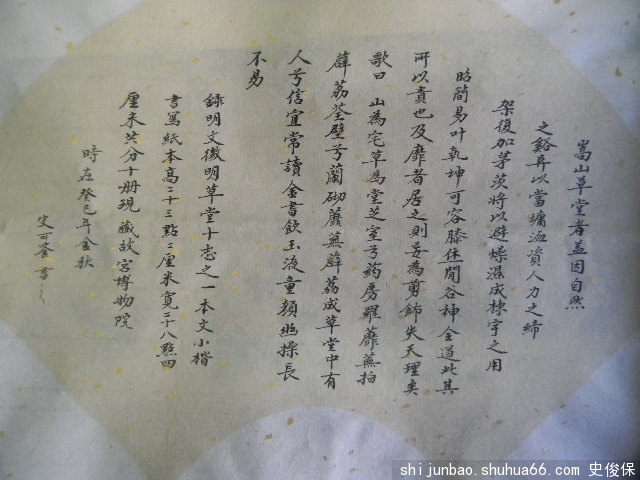 嵩山草堂者盖因自然
之谿阜以當墉洫資人力之締
架復加茅茨將以避燥濕成棟宇之用
昭簡易叶乾坤可容膝休閒谷神全道此其
所以貴也及靡者居之則妄為剪飾失天理矣
歌曰 山為宅草為堂芝室兮药房羅蘼蕪拍
薜荔荃壁兮蘭砌蘼蕪薜荔成草堂中有
人兮信宜常讀金書飲玉液童顏幽操長
不易
録明文徵明草堂十志之一本文小楷
書寫紙本高二十三點二厘米寬二十八點四
厘米共分十册現藏故宮博物院
時在癸巳年金秋
史可鉴書
shijunbao.shuhua66.com 史俊保